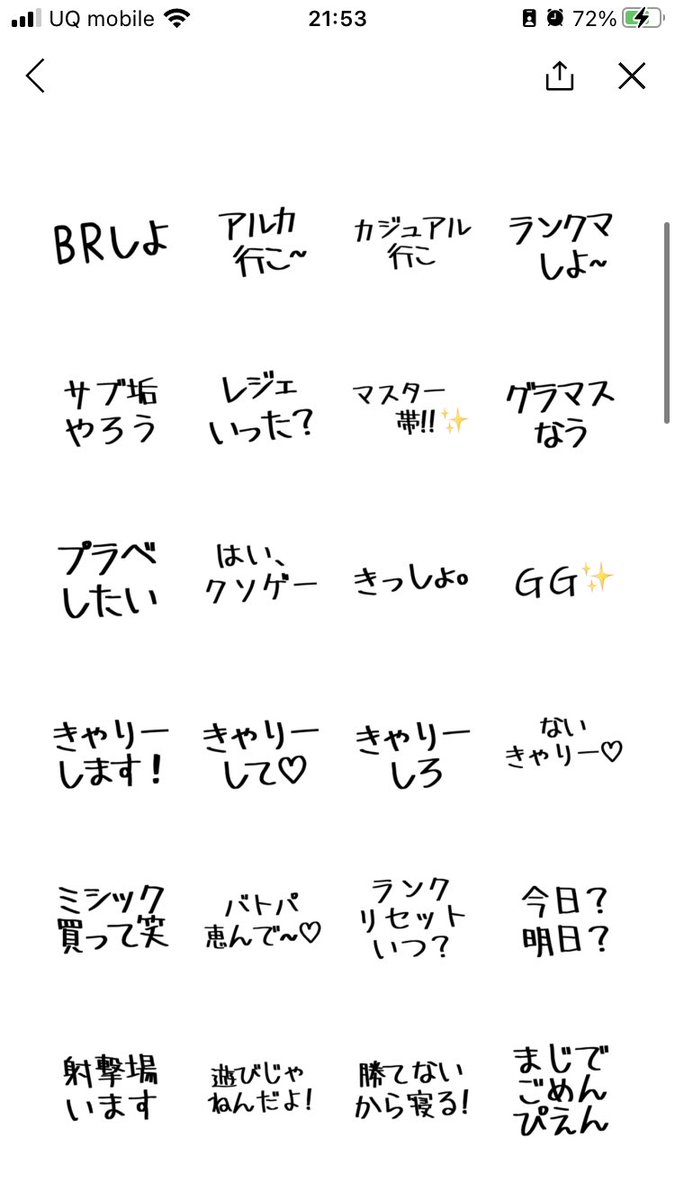 UQ mobile 21:53 72%
BRしよ
アルカ
行こ~
カジュアル
行こ
ランクマ
しよ~
サブ垢
やろう
レジェ
いった?
マスター
帯!!✨
グラマス
なう
プラベ
したい
はい、
クソゲー
きっしょ。
GG✨
きゃりー
します!
きゃりー
して♡
きゃりー
しろ
ない
きゃりー♡
ミシック
買って笑
バトパ
恵んで~♡
ランク
リセット
いつ?
今日?
明日?
射撃場
います
遊びじゃ
ねんだよ!
勝てない
から寝る!
まじで
ごめん
ぴえん